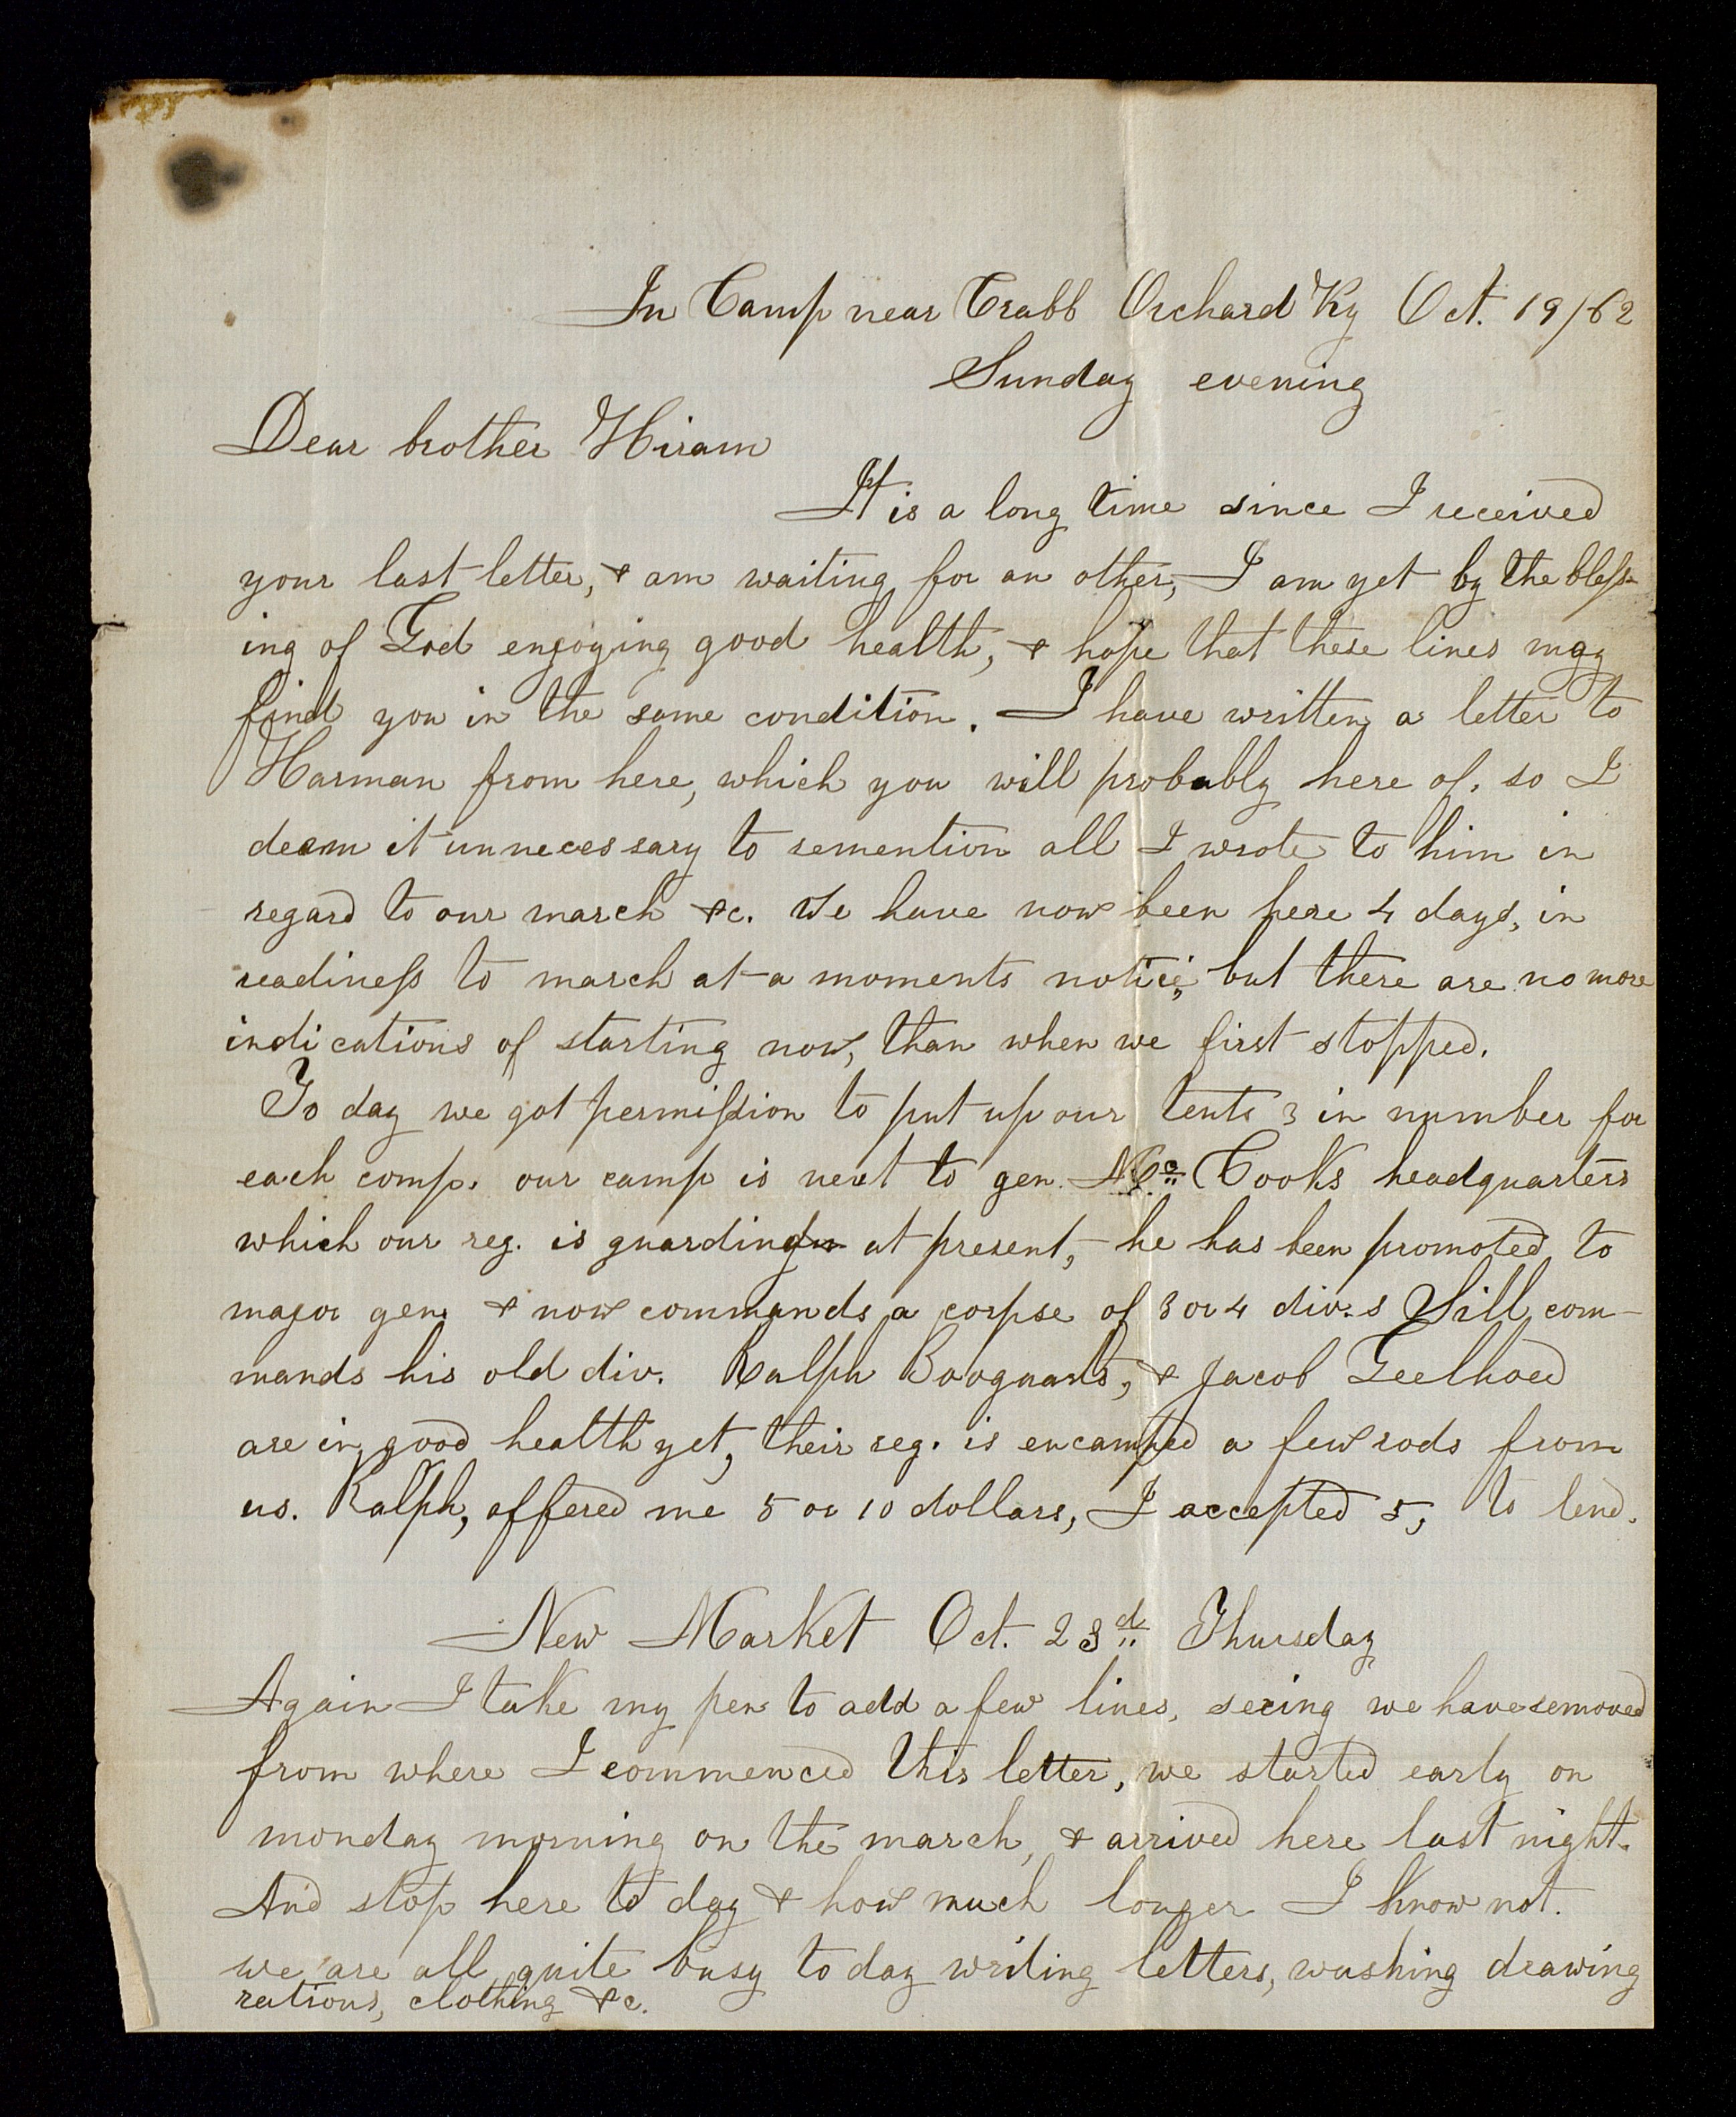 In Camp near Crabb Orchard Ky Oct. 19/62
Sunday evening
Dear brother Hiram
It is a long time since I received
your last letter, & am waiting for an other, I am yet by the bless-
ing of God enjoying good health, & hope that these lines may
find you in the same condition. I have written a letter to
Harman from here, which you will probably here of. so I
deem it unnecessary to remention all I wrote to him in
regard to our march &c. We have now been here 4 days, in
readiness to march at a moments notice, but there are no more
indications of starting now, than when we first stopped.
To day we got permission to put up our tents 3 in number for
each comp. our camp is next to gen. Mc Cooks headquarters
which our reg. is guarding at present, he has been promoted to
major gen. & now commands a corpse of 3 or 4 div.s Sill com-
mands his old div. Ralph & Jacob Geelhoed
are in good health yet, their reg. is encamped a few rods from
us. Ralph, offered me 5 or 10 dollars, I accepted 5, to lend.
New Market Oct. 23d Thursday
Again I take my pen to add a few lines, seeing we have removed
from where I commenced this letter, we started early on
monday morning on the march, & arrived here last night.
And stop here to day & how much longer I know not.
we are all quite busy to day writing letters, washing drawing
rations, clothing &c.